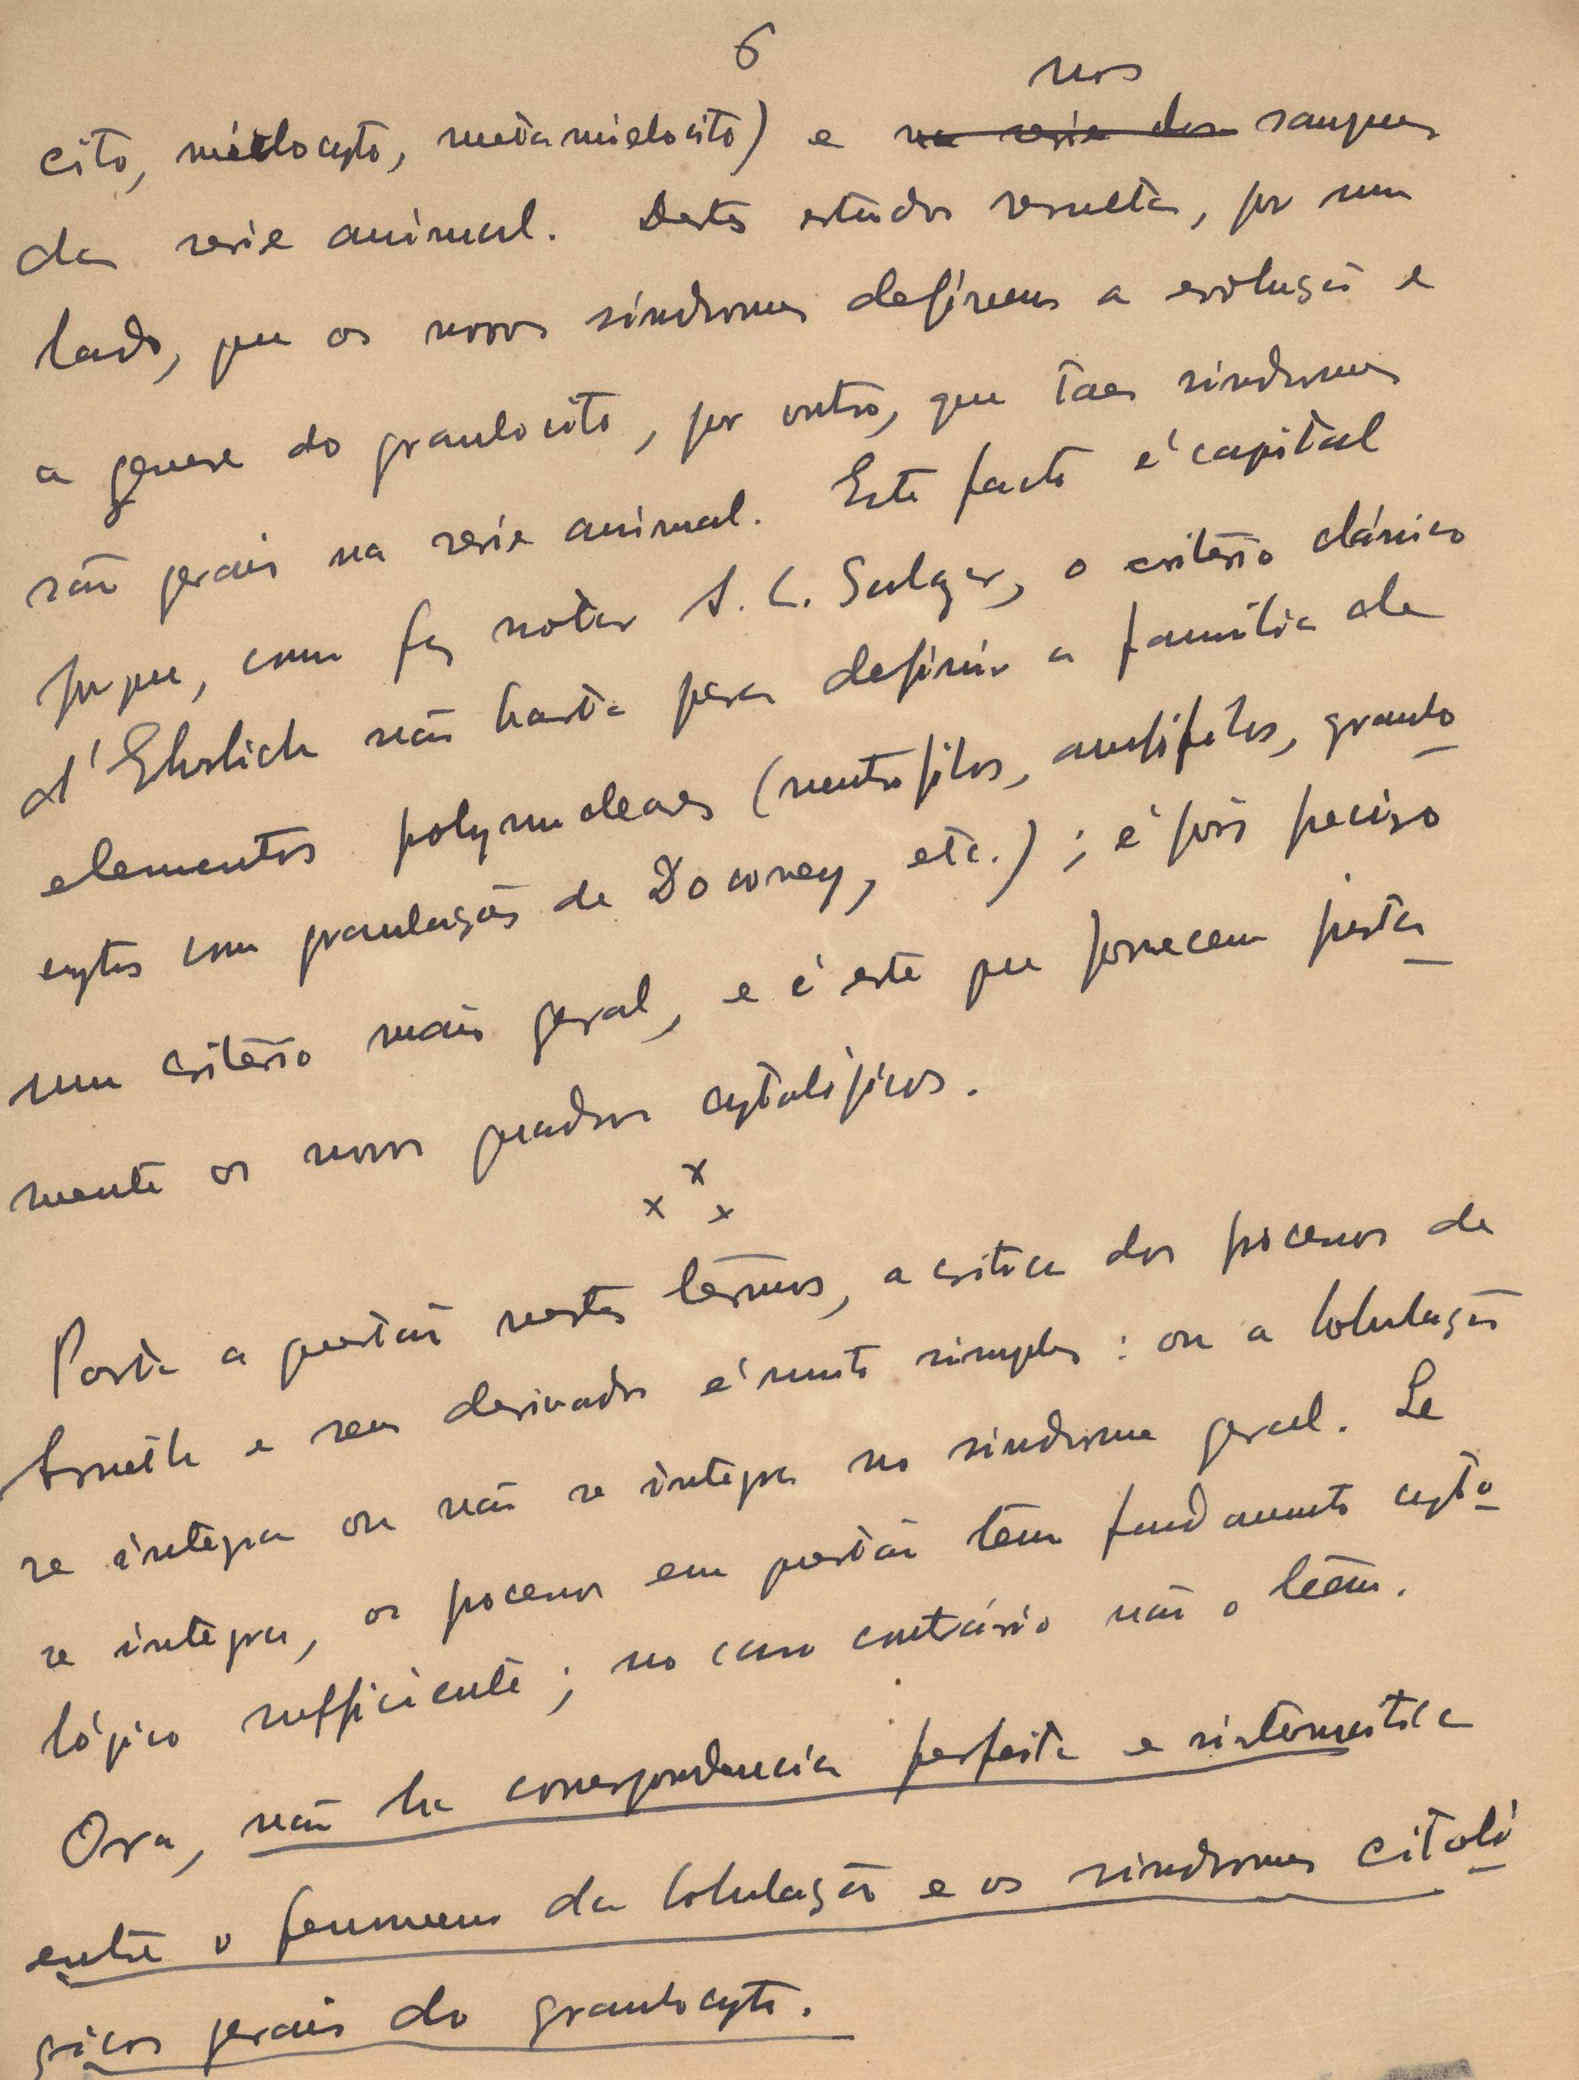 6
nos
cito, mielocyto, metamielocito) e ~~na serie dos~~ sangues
da serie animal. Destes estudos resulta, por um
lado, que os novos síndromes definem a evolução e
a génese do granulocito, por outro, que taes síndromes
são gerais na serie animal. Este facto é capital
porque, como faz notar A. C. Sulger, o critério clássico
d'Ehrlich não basta para definir a família de
elementos polynucleares (neutrofilos, amfifilos, granulo
cytos com granulações de Downey, etc.); é pois preciso
um critério mais geral, e é este que fornecem justa
mente os novos quadros cytológicos.
x x x
Posta a questão nestes termos, a critica dos processos de
Arneth e seus derivados é muito simples: ou a lobulação
se integra ou não se integra no síndrome geral. Se
se integra, os processos em questão têm fundamento cyto
lógico sufficiente; no caso contrário não o teem.
Ora, não ha correspondencia perfeita e sistematica
entre o fenomeno da lobulação e os síndromes citoló
gicos gerais do granulocyto.